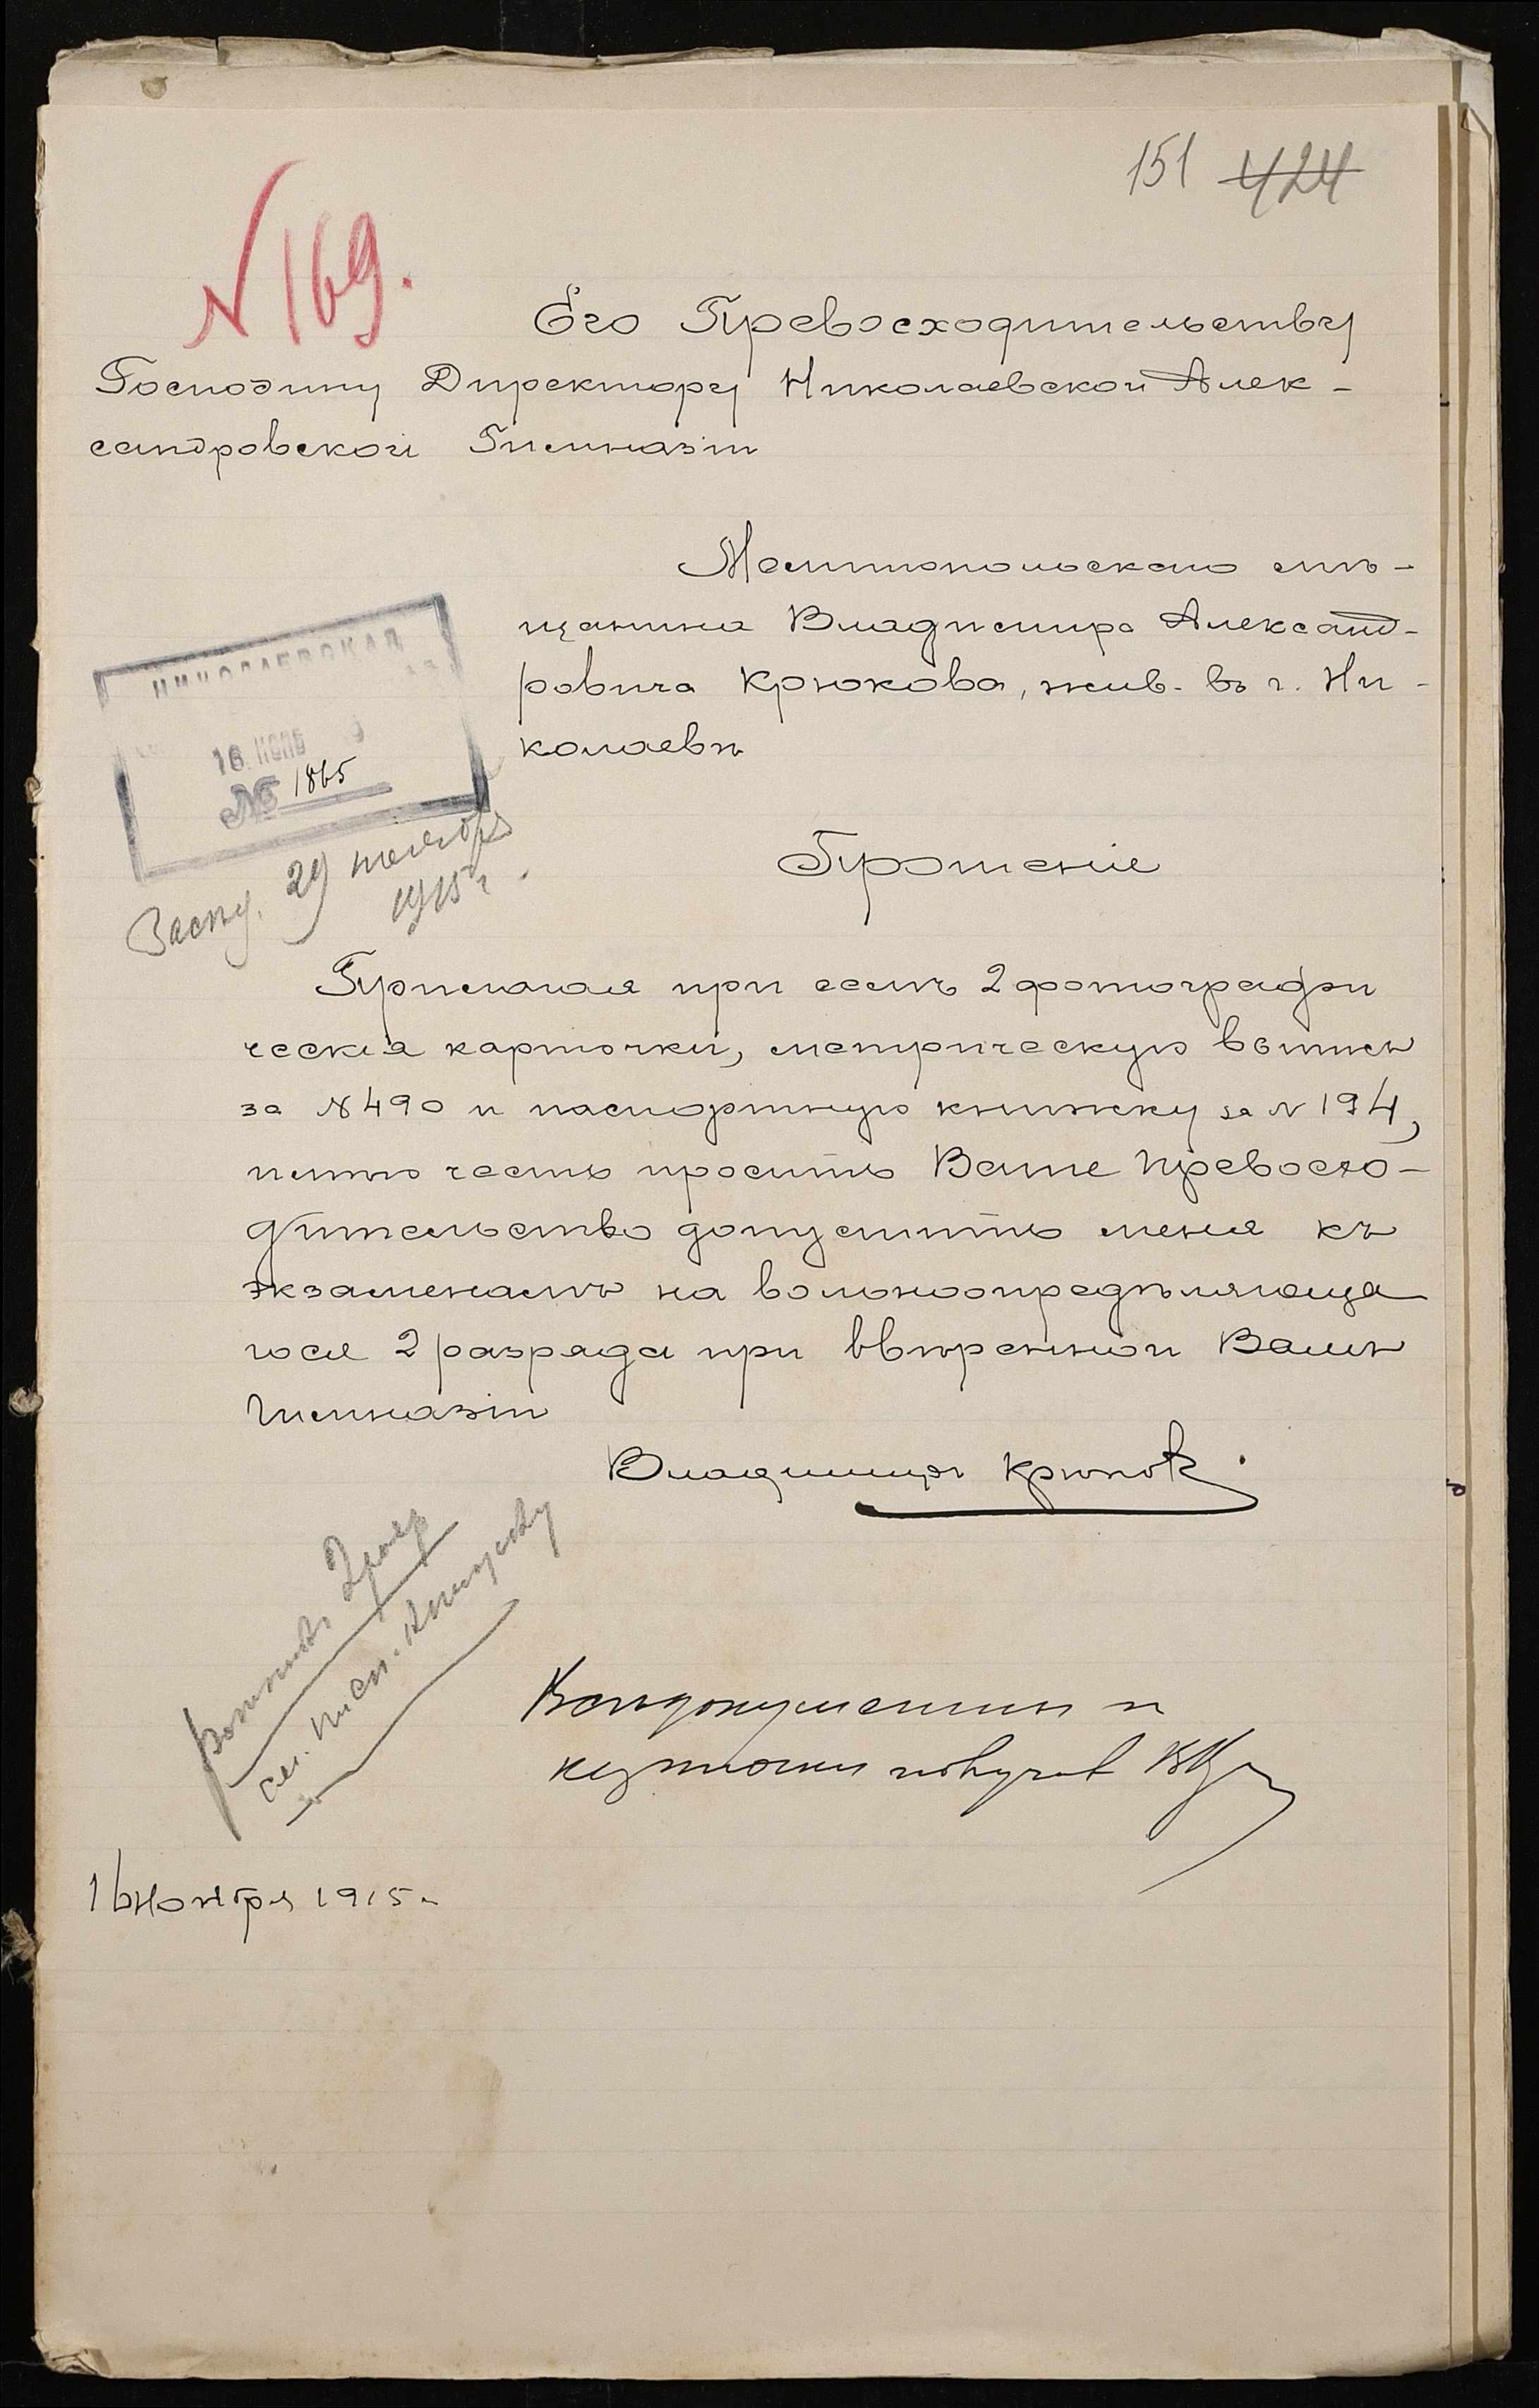 151 424
№ 169.
Его Превосходительству
Господину Директору Николаевской Алек-
сандровской Гимназіи
Мелитопольскаго мѣ-
щанина Владимира Александ-
ровича Крюкова, жив. въ г. Ни-
колаевѣ
НИКОЛАЕВСКАЯ
16 НОЯБ
№ 1865
29 ноября
1915 г.
Прошеніе
Прилагая при семъ 2 фотографи
ческія карточки, метрическую выпись
за № 490 и паспортную книжку за № 194,
имѣю честь просить Ваше Превосхо-
дительство допустить меня къ
экзаменамъ на вольноопредѣляюща
гося 2 разряда при ввѣренной Вамъ
Гимназіи
Владимиръ Крюковъ
документы и
получив
16 ноября 1915 г.